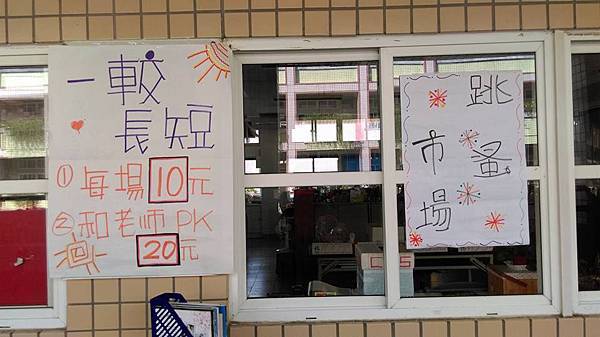 一較
長短
①每場10元
②和老师PK
20元
跳蚤
市場